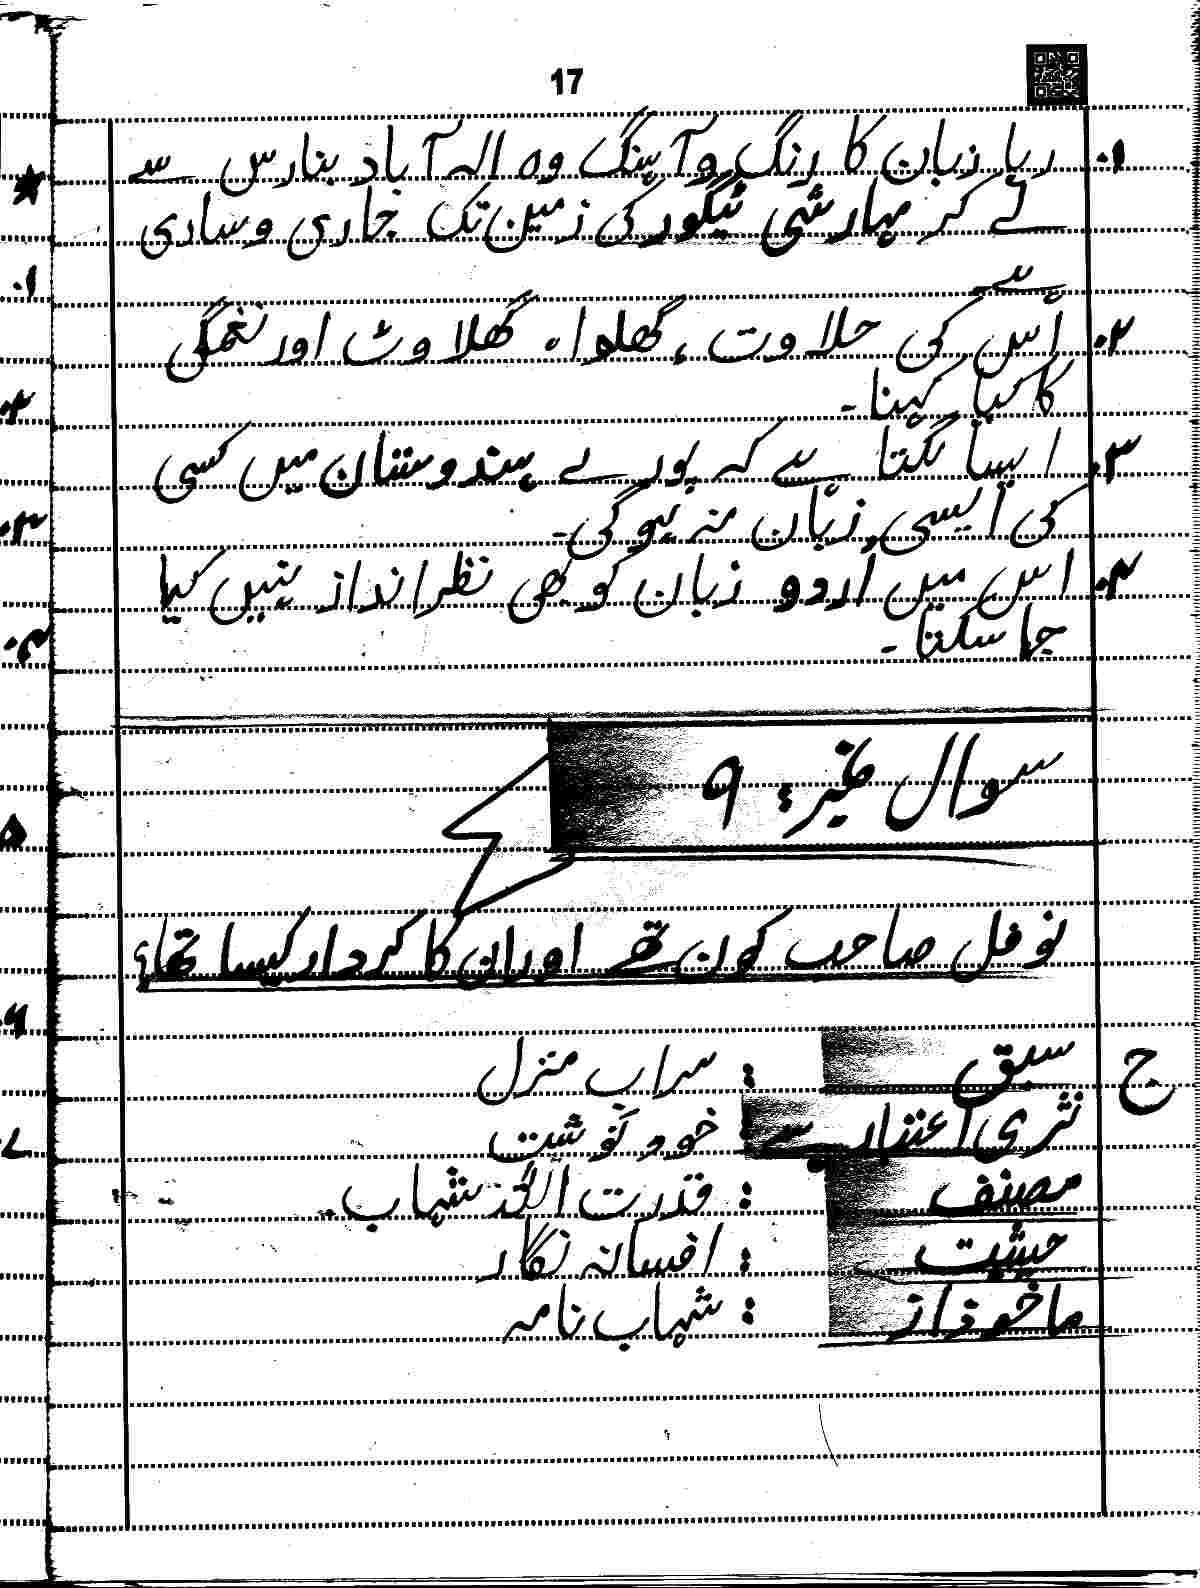 17
۱. رہا زبان کا رنگ و آہنگ وہ الہ آباد بنارس سے
لے کر مہارشی ٹیگور کی زمین تک جاری و ساری
ہے۔
۲. اُس کی حلاوت، گھلوا. گھلاوٹ اور نغمگی
کا کیا کہنا۔
۳. ایسا لگتا ہے کہ پورے ہندوستان میں کسی
کی ایسی زبان نہ ہوگی۔
۴. اس میں اردو زبان کو بھی نظر انداز نہیں کیا
جا سکتا۔
سوال نمبر: ۹
نوفل صاحب کون تھے اور ان کا کردار کیسا تھا؟
ج سبق : سراب منزل
نثری اعتبار سے: خود نوشت
مصنف : قدرت اللہ شہاب۔
حیثیت : افسانہ نگار
ماخوذ از : شہاب نامہ
۱.
۲.
۳.
۴.
۵
۶.
۷.